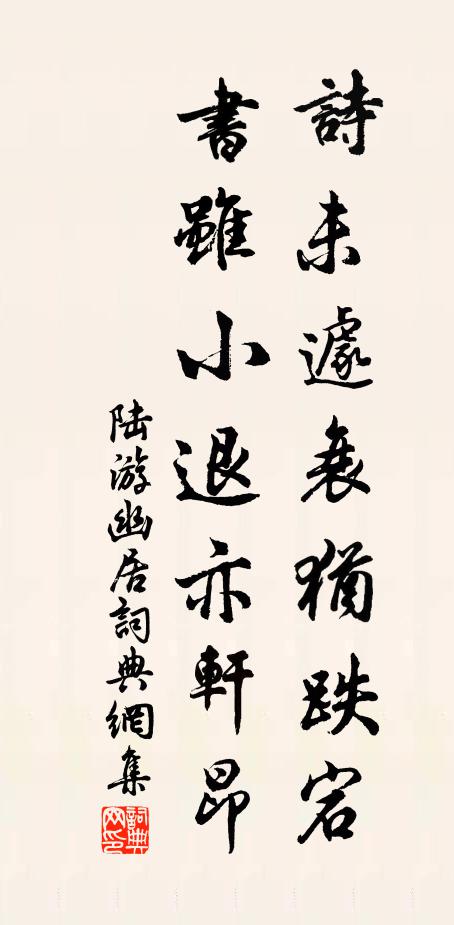 詩未遽衰猶跌宕
書雖小退亦軒昂
陆游幽居詞典網集
詞典
网印